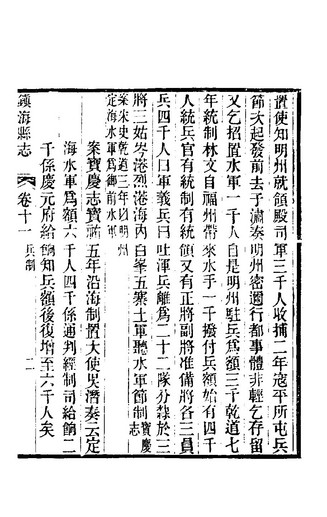 置使知明州就領殿司軍三千人收捕二年寇平所屯兵
節次起發前去子潚奏明州密邇行都事體非輕乞存留
又乞招置水軍一千人自是明州駐兵爲額三千乾道七
年統制林文自福州帶來水手一千撥付兵額始有四千
人統兵官有統制有統領又有正將副將準備將各三員
兵四千人曰軍義兵曰吐渾兵離爲二十二隊分隸於三
將三姑岑港烈港海內白峯五寨土軍聽水軍節制寶慶志
案宋史乾道三年以明州
定海水軍爲御前水軍
案寶慶志寶祐五年沿海制置大使吳潛奏云定
海水軍爲額六千人四千係通判經制司給餉二
千係慶元府給餉知兵額後復增至六千人矣
鎮海縣志
卷十一
兵制
二